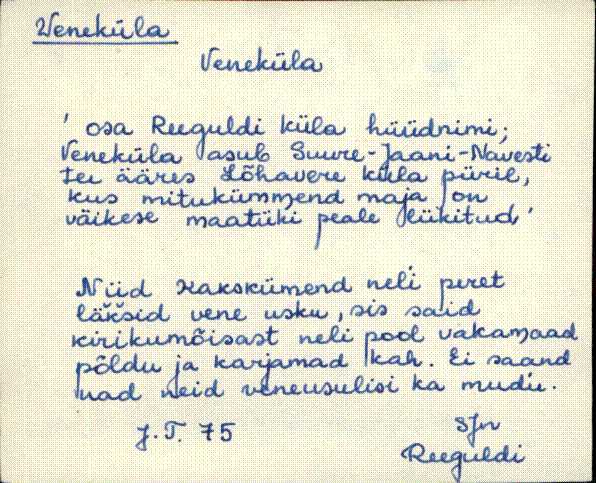 Veneküla
Veneküla
' osa Reeguldi küla hüüdnimi;
Veneküla asub Suure-Jaani-Navesti
tee ääres Lõhavere küla piiril,
kus mitukümmend maja on
väikese maatüki peale lükitud'
Niid kakskümend neli peret
läksid vene usku, sis said
kirikumõisast neli pool vakamaad
põldu ja karjamad kah. Ei saand
nad neid veneusulisi ka mudu.
J. T. 75
SJn
Reeguldi